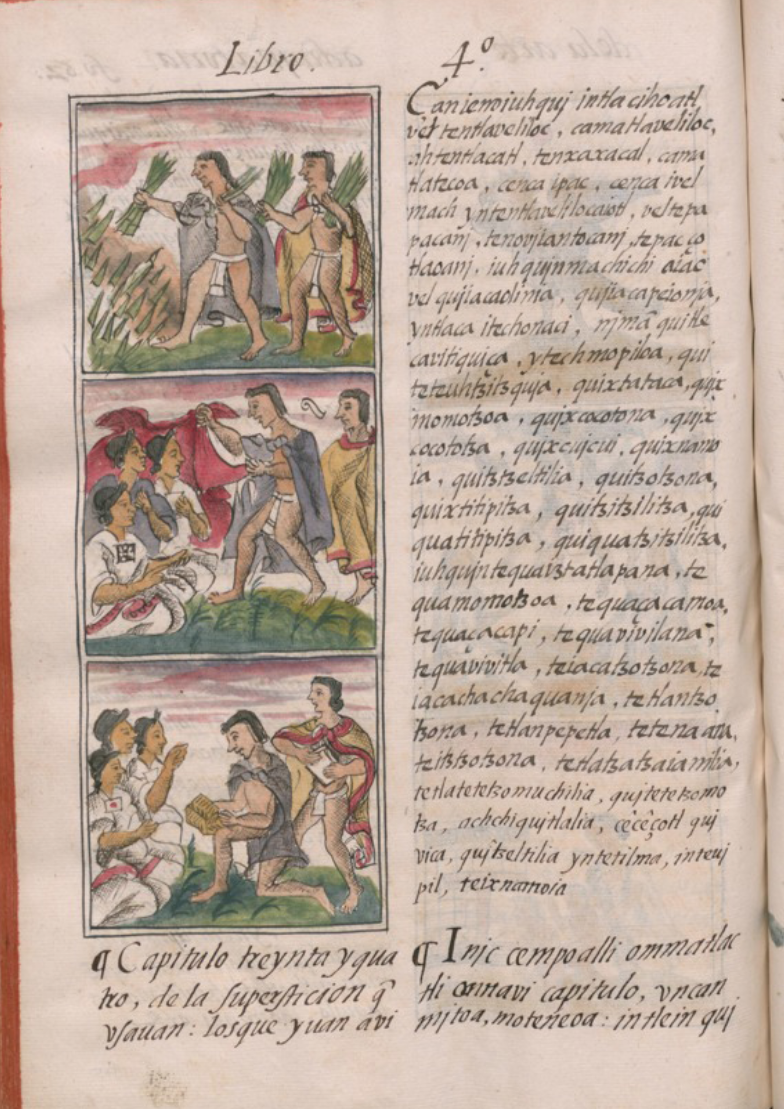 Libro. 4.º
¶ Capitulo treynta y qua
tro, de la supersticion q̄
vsauan: los que yuan a vi
Can ie no iuhquj intla cihoatl
vel tentlaveliloc, camatlaveliloc,
ahtentlacatl, tenxaxacal, cama
tlatzcoa, cenca ipac, cenca ivel
mach yntentlavelilocaiotl, vel tepa
pacanj, tenovilantocanj, tepac ço
tlaoanj, iuhqujnma chichi aiac
vel qujiacaolinia, qujiacapeionja,
yntlaca itech onaci, njmā quitle
cavitiquiça, ytech mopiloa, qui
teteuhtzitzquja, quixtataca, qujx
momotzoa, quixcocotona, qujx
cocototza, qujxcujcui, quixnamo
ia, quitztzeltilia, quitzotzona,
quixtitipitza, quitzitzilitza, qui
quatitipitza, quiquatzitzilitza,
iuhqujn tequaixtatlapana, te
quamomotzoa, tequaçaçamoa,
tequaçaçapi, tequavivilana,
tequavivitla, teiacatzotzona, te
iacachachaquanja, tetlantzo
tzona, tetlanpepetla, tetena
teitztzotzona, tetlatzatzaianilia,
tetlatetetzomuchilia, qujtetetzomo
tza, achchiquitlalia, cēcēçotl quj
vica, qujtzeltilia yntetilma, inteuj
pil, teixnamoia
¶ Injc cempoalli ommatlac
tli onnavi capitulo, vncan
mjtoa, moteneoa: in tlein quj